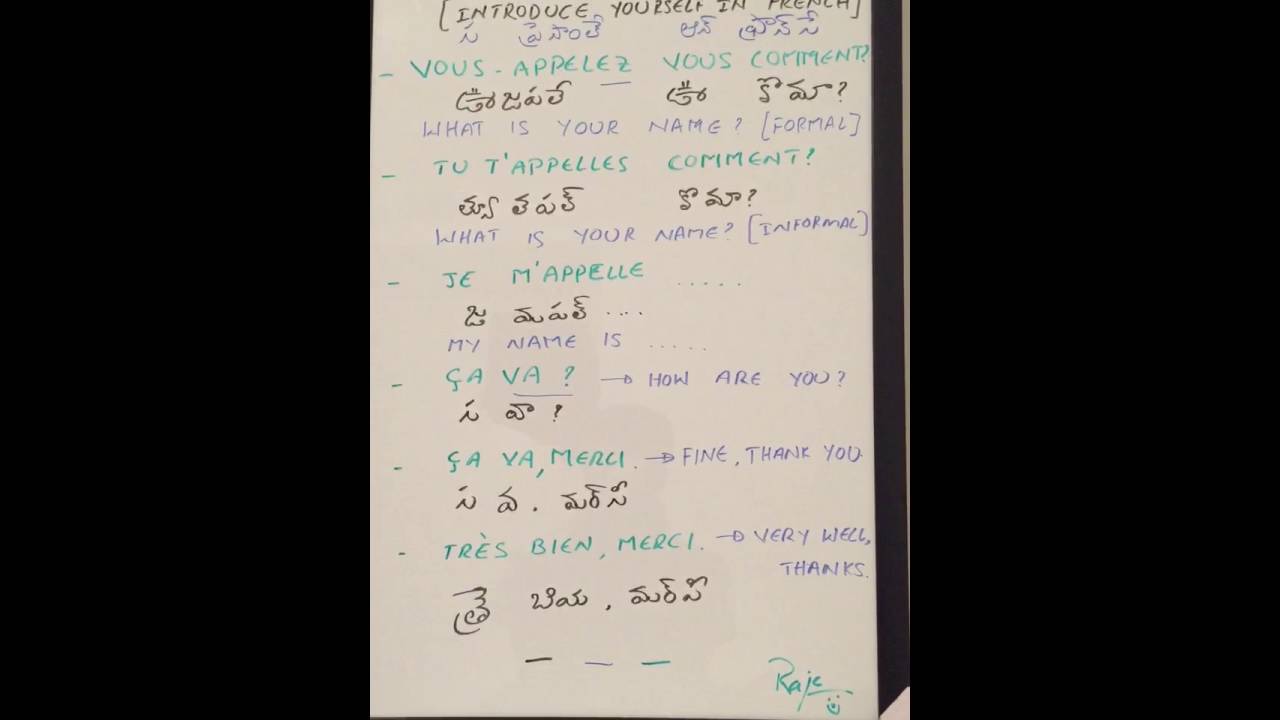 [INTRODUCE YOURSELF IN FRENCH]
స ప్రెసాంతే ఆన్ ఫ్రాన్సే
- VOUS-APPELEZ VOUS COMMENT?
ఊజపలే ఊ కొమా?
WHAT IS YOUR NAME? [FORMAL]
- TU T'APPELLES COMMENT?
త్యూ తపల్ కొమా?
WHAT IS YOUR NAME? [INFORMAL]
- JE M'APPELLE .....
జు మపల్ ....
MY NAME IS .....
- ÇA VA? → HOW ARE YOU?
స వా?
- ÇA VA, MERCI. → FINE, THANK YOU.
స వ. మర్సీ
- TRÈS BIEN, MERCI. → VERY WELL, THANKS.
త్రె బియ, మర్సీ
Raje